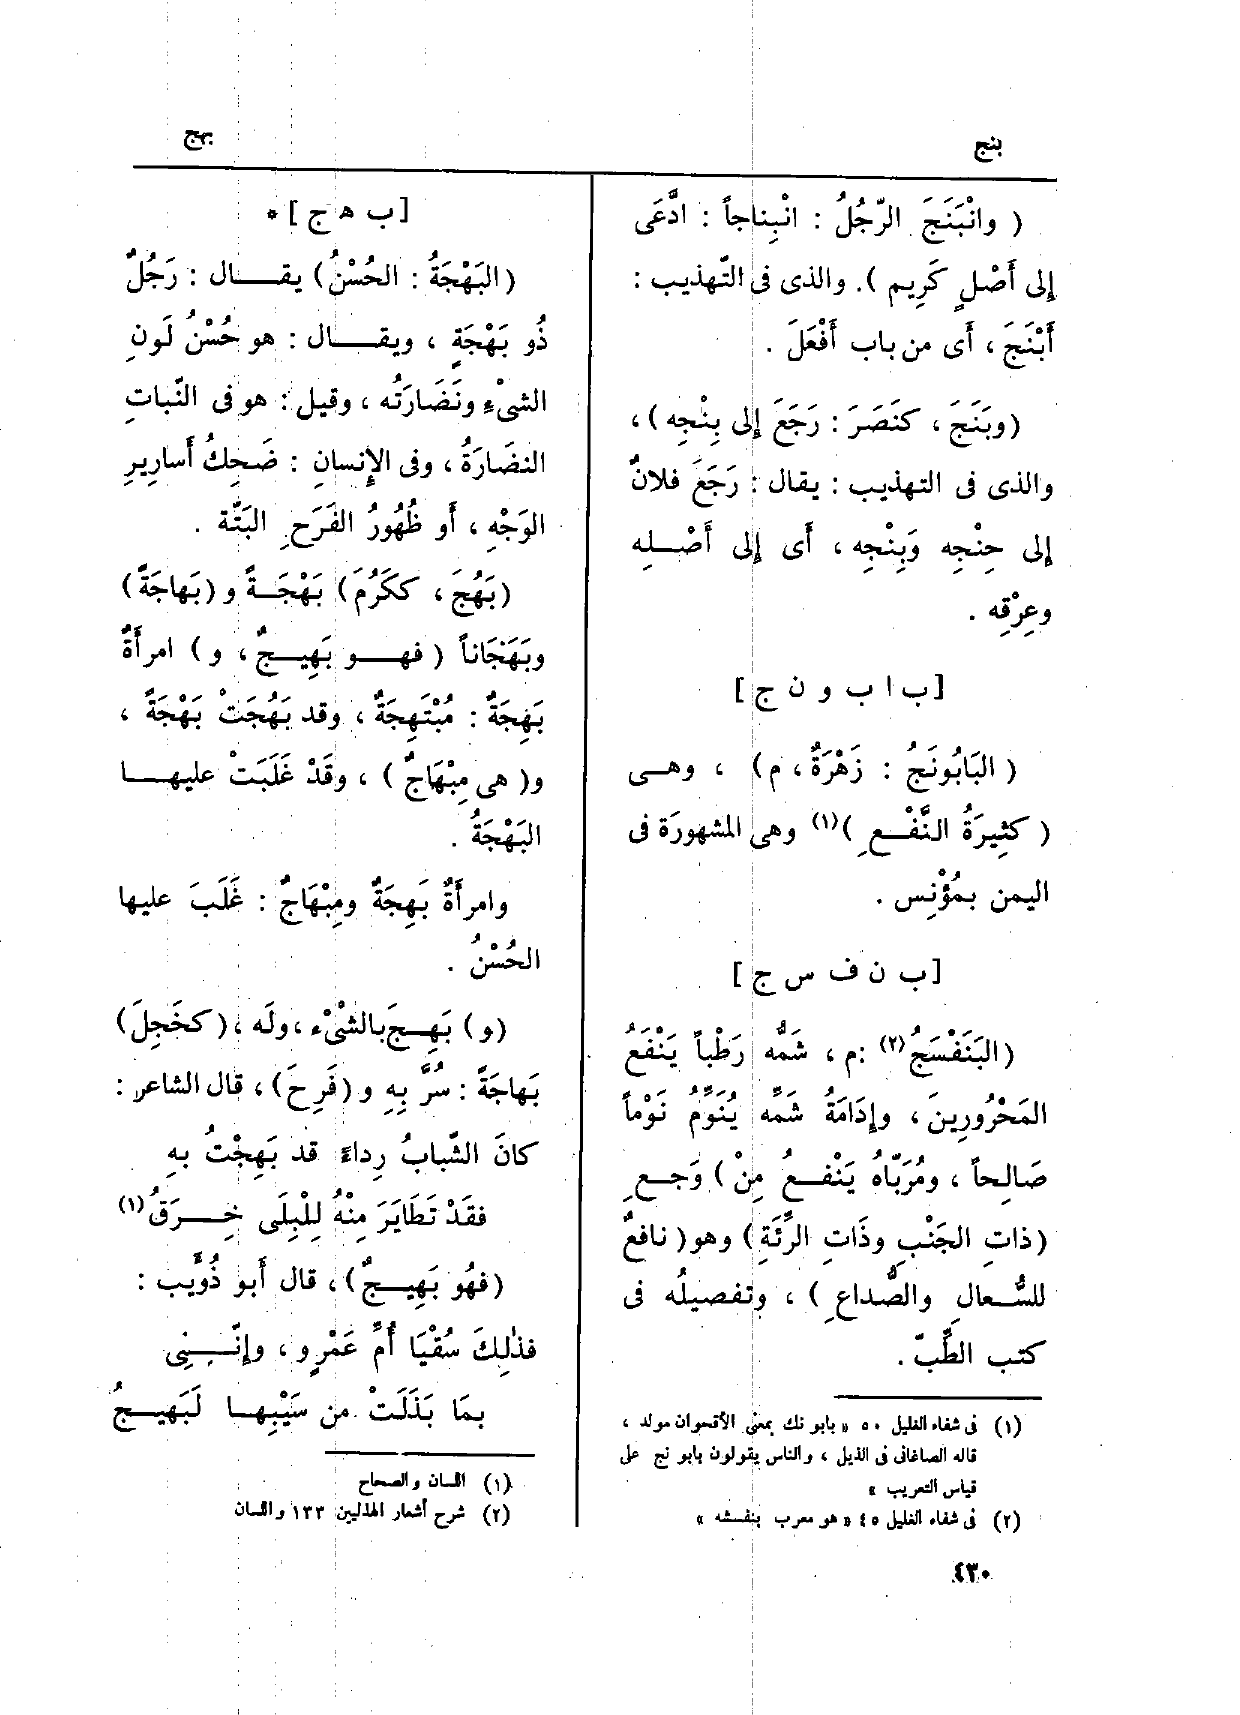 بنج
بهج
( وانْبَنَجَ الرّجُلُ : انْبِناجاً : ادَّعَى
إلى أَصْلٍ كَرِيم ). والذى فى التّهذيب :
أَبْنَجَ ، أى من باب أَفْعَلَ .
(وبَنَجَ ، كنَصَرَ : رَجَعَ إلى بِنْجِه ) ،
والذى فى التهذيب : يقال : رَجَعَ فلانٌ
إلى حِنْجِه وَبِنْجِه ، أى إلى أَصْلِه
وعِرْقِه .
[ ب ا ب و ن ج ]
( البَابُونَجُ : زَهْرَةٌ ، م ) ، وهى
( كثِيرَةُ النَّفْعِ )(١) وهى المشهورَة فى
اليمن بمُؤْنِس .
[ ب ن ف س ج ]
(البَنَفْسَجُ(٢) : م ، شَمُّه رَطْباً يَنْفَعُ
المَحْرُورِينَ ، وإدَامَةُ شَمِّه يُنَوِّمُ نَوْماً
صَالِحاً ، ومُرَبّاهُ يَنْفعُ مِنْ ) وَجعِ
(ذاتِ الجَنْبِ وذَاتِ الرِّئَةِ) وهو ( نافعٌ
للسُّعالِ والصُّداعِ ) ، وتفصيلُه فى
كتب الطِّبّ .
(١) فى شفاء الغليل ٥٠ « بابونك بمعنى الأقحوان مولد ،
قاله الصاغانى فى الذيل ، والناس يقولون بابو نج على
قياس التعريب »
(٢) فى شفاء الغليل ٤٥ « هو معرب بنفشه »
[ ب ه ج ] *
(البَهْجَةُ : الحُسْنُ) يقال : رَجُلٌ
ذُو بَهْجَةٍ ، ويقال : هو حُسْنُ لَونِ
الشىْءِ ونَضَارَتُه ، وقيل : هو فى النّباتِ
النضَارَةُ ، وفى الإنسانِ : ضَحِكُ أَسارِيرِ
الوَجْهِ ، أو ظُهُورُ الفَرَحِ البَتّة .
(بَهُجَ ، ككَرُمَ) بَهْجَةً و (بَهاجَةً)
وبَهَجَاناً ( فهو بَهِيجٌ ، و ) امرأَةٌ
بَهِجَةٌ : مُبْتَهِجَةٌ ، وقد بَهُجَتْ بَهْجَةً ،
و( هى مِبْهَاجٌ ) ، وقَدْ غَلَبَتْ عليها
البَهْجَةُ .
وامرأَةٌ بَهِجَةٌ ومِبْهَاجٌ : غَلَبَ عليها
الحُسْنُ .
(و) بَهِجَ بالشىْءِ ، ولَه ، (كخَجِلَ)
بَهاجَةً : سُرَّ بِهِ و (فَرِحَ) ، قال الشاعر :
كانَ الشّبابُ رِداءً قد بَهِجْتُ بهِ
فقَدْ تَطَايَرَ مِنْهُ لِلْبِلَى خِرَقُ(١)
(فهُو بَهِيجٌ) ، قال أَبو ذُؤَيب :
فذٰلِكَ سُقْيَا أُمِّ عَمْرٍو ، وإنَّنِى
بمَا بَذَلَتْ من سَيْبِها لَبَهِيجُ
(١) اللسان والصحاح
(٢) شرح أشعار الهذليين ١٣٣ واللسان
٤٣٠